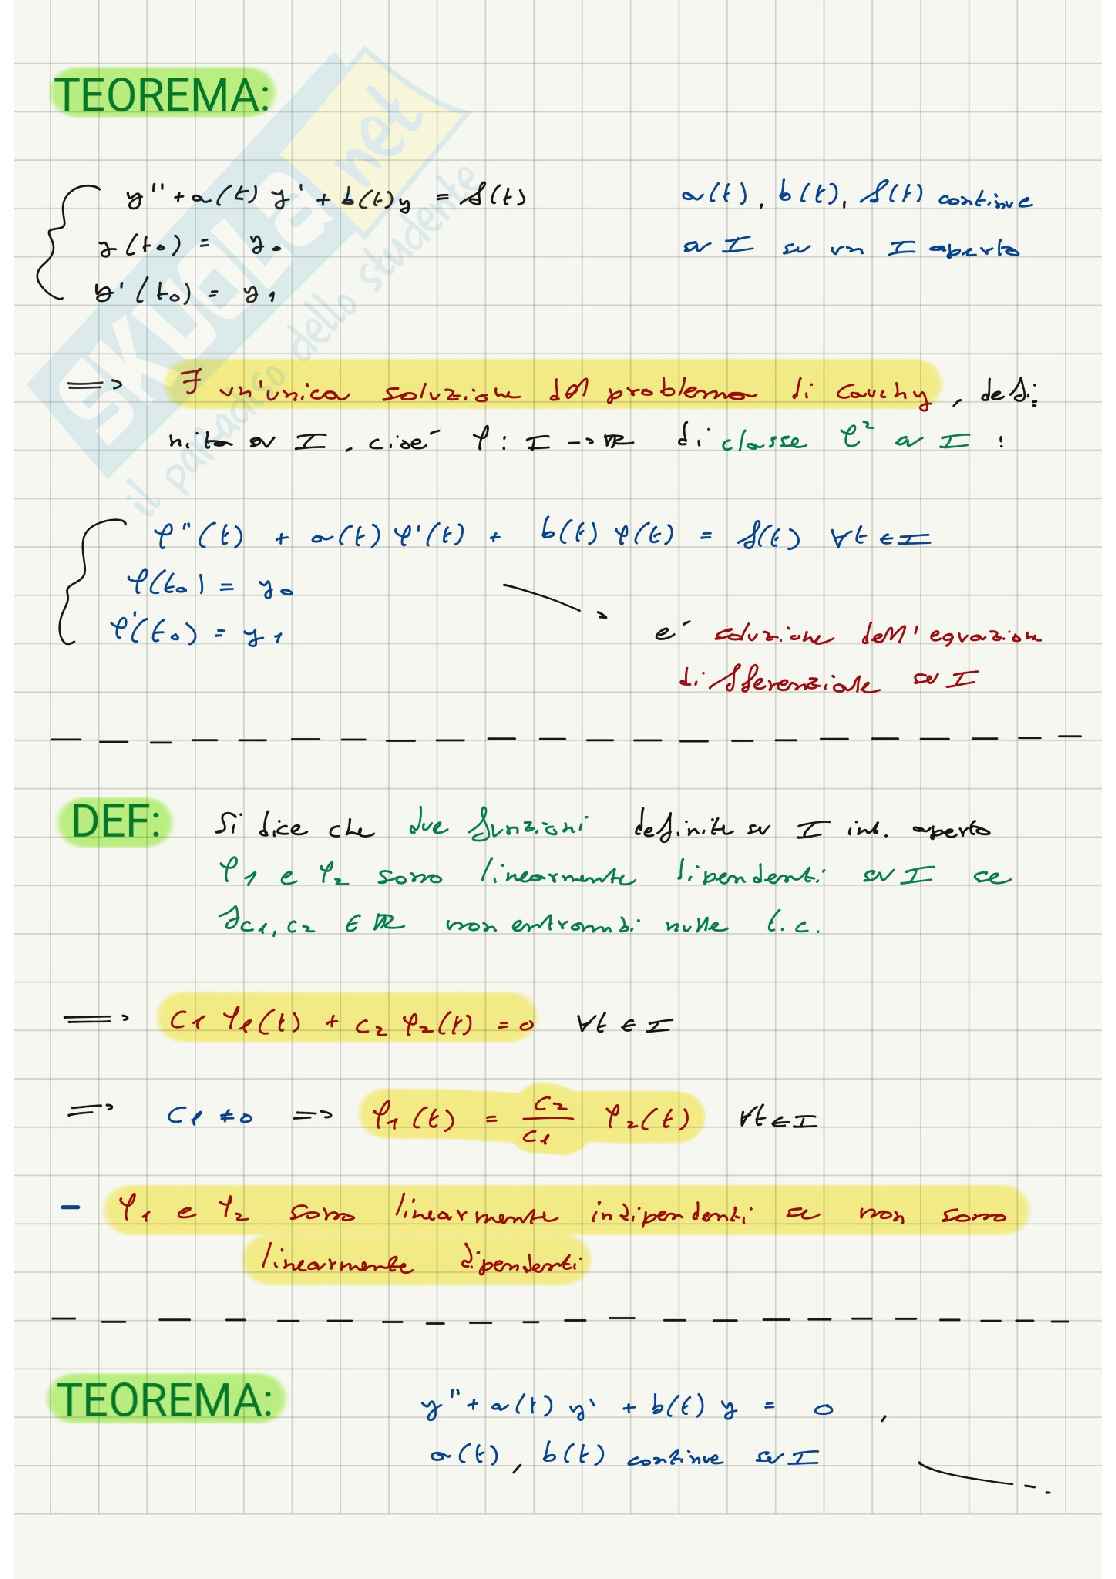 TEOREMA:
y'' + a(t) y' + b(t) y = f(t) a(t), b(t), f(t) continue
y(t₀) = y₀ su I su un I aperto
y'(t₀) = y₁
=> ∃ un'unica soluzione del problema di Cauchy, defi:
nita su I, cioé φ: I -> ℝ di classe C² su I :
φ''(t) + a(t) φ'(t) + b(t) φ(t) = f(t) ∀t ∈ I
φ(t₀) = y₀
φ'(t₀) = y₁
é soluzione dell'equazione
differenziale su I
DEF: Si dice che due funzioni definite su I int. aperto
φ₁ e φ₂ sono linearmente dipendenti su I se
∃c₁, c₂ ∈ ℝ non entrambi nulle t.c.
=> c₁ φ₁(t) + c₂ φ₂(t) = 0 ∀t ∈ I
=> c₁ ≠ 0 => φ₁(t) = c₂/c₁ φ₂(t) ∀t ∈ I
- φ₁ e φ₂ sono linearmente indipendenti se non sono
linearmente dipendenti
TEOREMA: y'' + a(t) y' + b(t) y = 0 ,
a(t), b(t) continue su I
SKUOLA.net
il paradiso dello studente